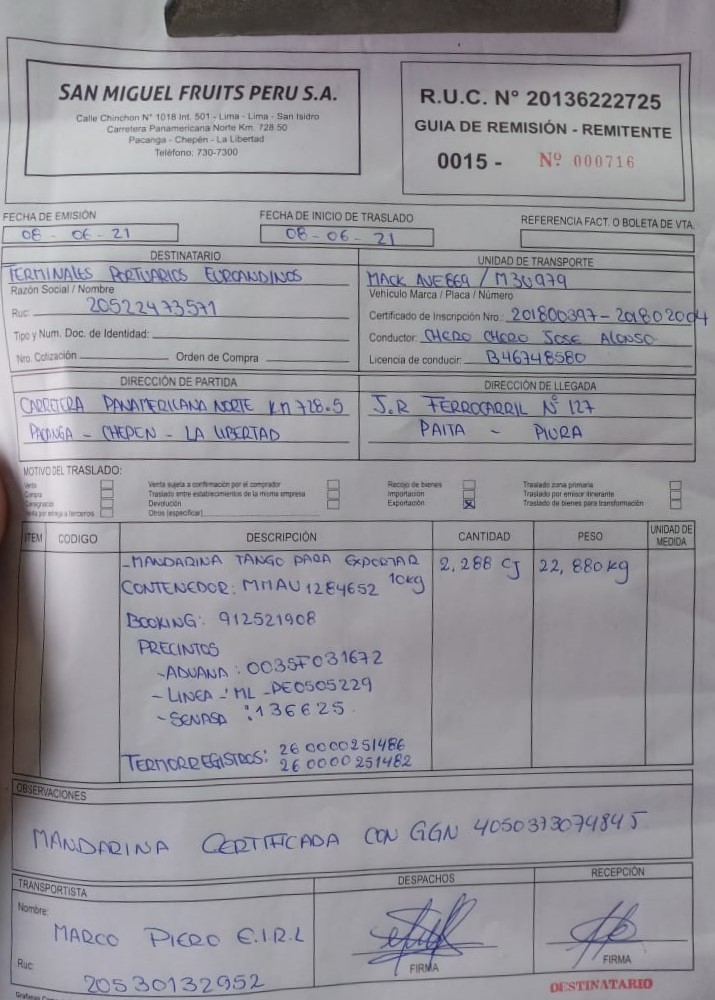 SAN MIGUEL FRUITS PERU S.A.
Calle Chinchon N° 1018 Int. 501 - Lima - Lima - San Isidro
Carretera Panamericana Norte Km. 728.50
Pacanga - Chepén - La Libertad
Teléfono: 730-7300
R.U.C. N° 20136222725
GUIA DE REMISIÓN - REMITENTE
0015 - Nº 000716
FECHA DE EMISIÓN
08 - 06 - 21
FECHA DE INICIO DE TRASLADO
08 - 06 - 21
REFERENCIA FACT. O BOLETA DE VTA.
DESTINATARIO
TERMINALES PORTUARIOS EUROANDINOS
Razón Social / Nombre
Ruc: 20522473571
Tipo y Num. Doc. de Identidad:
Nro. Cotización Orden de Compra
UNIDAD DE TRANSPORTE
MACK AVE869 / M3U979
Vehículo Marca / Placa / Número
Certificado de Inscripción Nro.: 201800397 - 201802004
Conductor: CHERO CHERO JOSE ALONSO
Licencia de conducir: B46748580
DIRECCIÓN DE PARTIDA
CARRETERA PANAMERICANA NORTE Km 728.5
PACANGA - CHEPEN - LA LIBERTAD
DIRECCIÓN DE LLEGADA
J.R FERROCARRIL Nº 127
PAITA - PIURA
MOTIVO DEL TRASLADO:
Venta
Compra
Consignación
Venta por entrega a terceros
Venta sujeta a confirmación por el comprador
Traslado entre establecimientos de la misma empresa
Devolución
Otros (especificar)
Recojo de bienes
Importación
Exportación X
Traslado zona primaria
Traslado por emisor itinerante
Traslado de bienes para transformación
ITEM CODIGO DESCRIPCIÓN CANTIDAD PESO UNIDAD DE MEDIDA
- MANDARINA TANGO PARA EXPORTAR 2,288 CJ 22,880 kg
CONTENEDOR: MMAU1284652 10kg
BOOKING: 912521908
PRECINTOS
- ADUANA: 0035F031672
- LINEA -: ML - PE0505229
- SENASA : 136625
TERMORREGISTROS: 260000251486
260000251482
OBSERVACIONES
MANDARINA CERTIFICADA CON GGN 4050373074845
TRANSPORTISTA
Nombre:
MARCO PIERO E.I.R.L
Ruc:
20530132952
DESPACHOS
FIRMA
RECEPCIÓN
FIRMA
DESTINATARIO